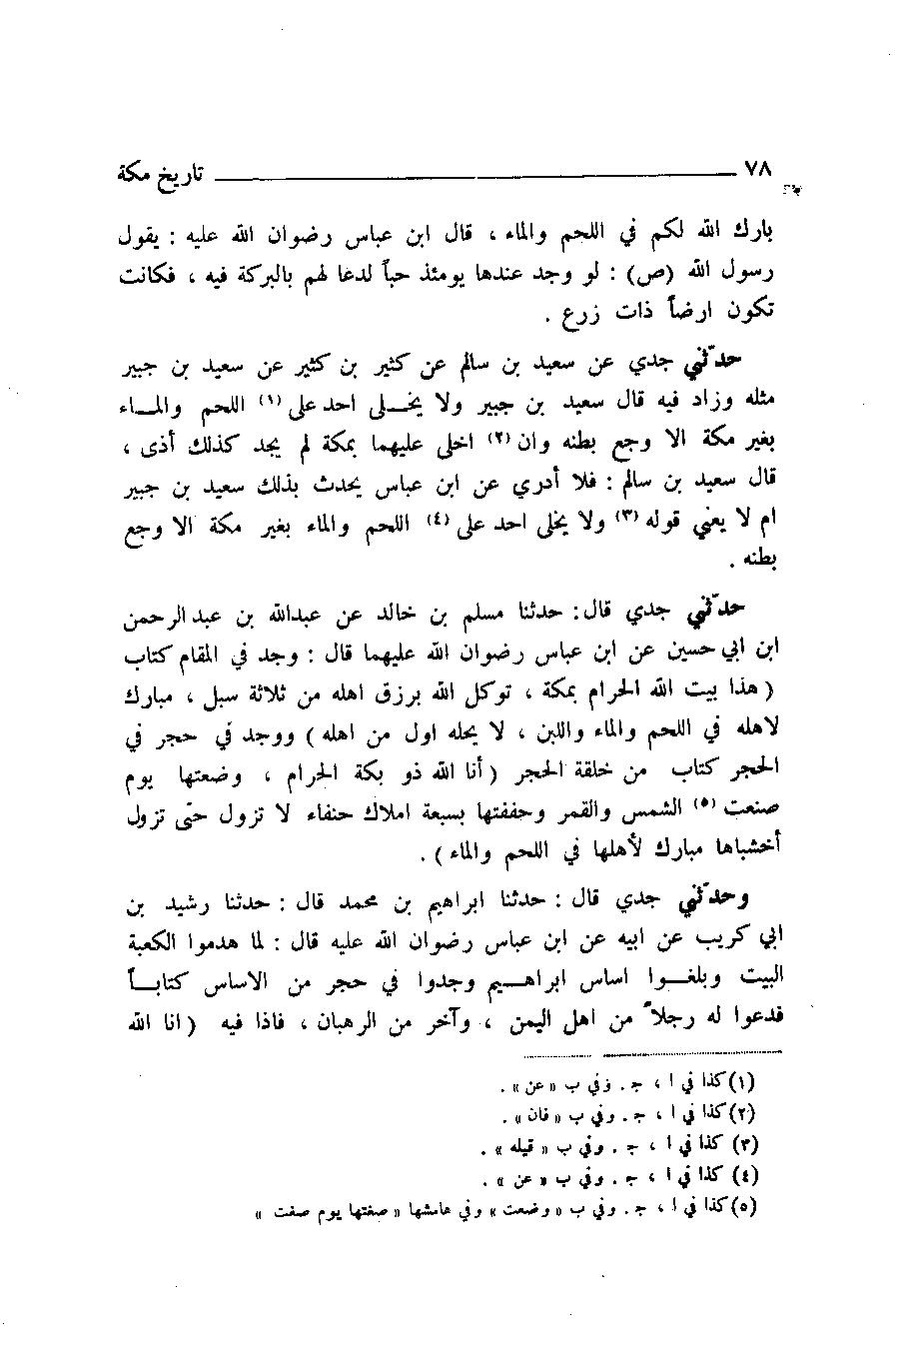 ٧٨ تاريخ مكة
بارك الله لكم في اللحم والماء ، قال ابن عباس رضوان الله عليه : يقول
رسول الله (ص) : لو وجد عندها يومئذ حباً لدعا لهم بالبركة فيه ، فكانت
تكون ارضاً ذات زرع .
حدّثني جدي عن سعيد بن سالم عن كثير بن كثير عن سعيد بن جبير
مثله وزاد فيه قال سعيد بن جبير ولا يخـــلى احد على (١) اللحم والمـــاء
بغير مكة الا وجع بطنه وان (٢) اخلى عليهما بمكة لم يجد كذلك أذى ،
قال سعيد بن سالم : فلا أدري عن ابن عباس يحدث بذلك سعيد بن جبير
ام لا يعني قوله (٣) ولا يخلى احد على (٤) اللحم والماء بغير مكة الا وجع
بطنه .
حدّثني جدي قال : حدثنا مسلم بن خالد عن عبدالله بن عبدالرحمن
ابن ابي حسين عن ابن عباس رضوان الله عليهما قال : وجد في المقام كتاب
( هذا بيت الله الحرام بمكة ، توكل الله برزق اهله من ثلاثة سبل ، مبارك
لاهله في اللحم والماء واللبن ، لا يحله اول من اهله ) ووجد في حجر في
الحجر كتاب من خلقة الحجر ( أنا الله ذو بكة الحرام ، وضعتها يوم
صنعت (٥) الشمس والقمر وحففتها بسبعة املاك حنفاء لا تزول حتى تزول
أخشباها مبارك لأهلها في اللحم والماء ) .
وحدّثني جدي قال : حدثنا ابراهيم بن محمد قال : حدثنا رشيد بن
ابي كريب عن ابيه عن ابن عباس رضوان الله عليه قال : لما هدموا الكعبة
البيت وبلغـــوا اساس ابراهـــيم وجدوا في حجر من الاساس كتابـــاً
فدعوا له رجلاً من اهل اليمن ، وآخر من الرهبان ، فاذا فيه ( انا الله
(١) كذا في ا ، ج . وفي ب « عن » .
(٢) كذا في ا ، ج . وفي ب « فان » .
(٣) كذا في ا ، ج . وفي ب « قيله » .
(٤) كذا في ا ، ج . وفي ب « عن » .
(٥) كذا في ا ، ج . وفي ب « وضعت » وفي هامشها « صغتها يوم صغت »